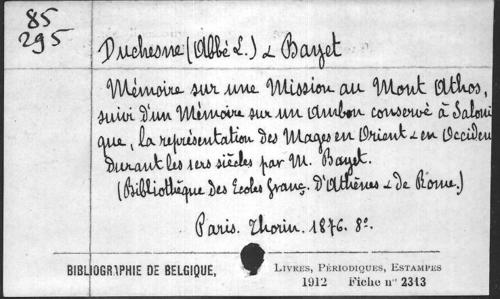 85
295
Duchesne (Abbé L.) & Bayet
Mémoire sur une Mission au Mont Athos,
suivi d'un Mémoire sur un ambon conservé à Saloni
que, la représentation des Mages en Orient & en Occiden
durant les 1ers siècles par M. Bayet.
(Bibliothèque des Ecoles franç. d'Athènes & de Rome.)
Paris. Thorin. 1876. 8º.
BIBLIOGRAPHIE DE BELGIQUE, LIVRES, PÉRIODIQUES, ESTAMPES
1912 Fiche nº 2313